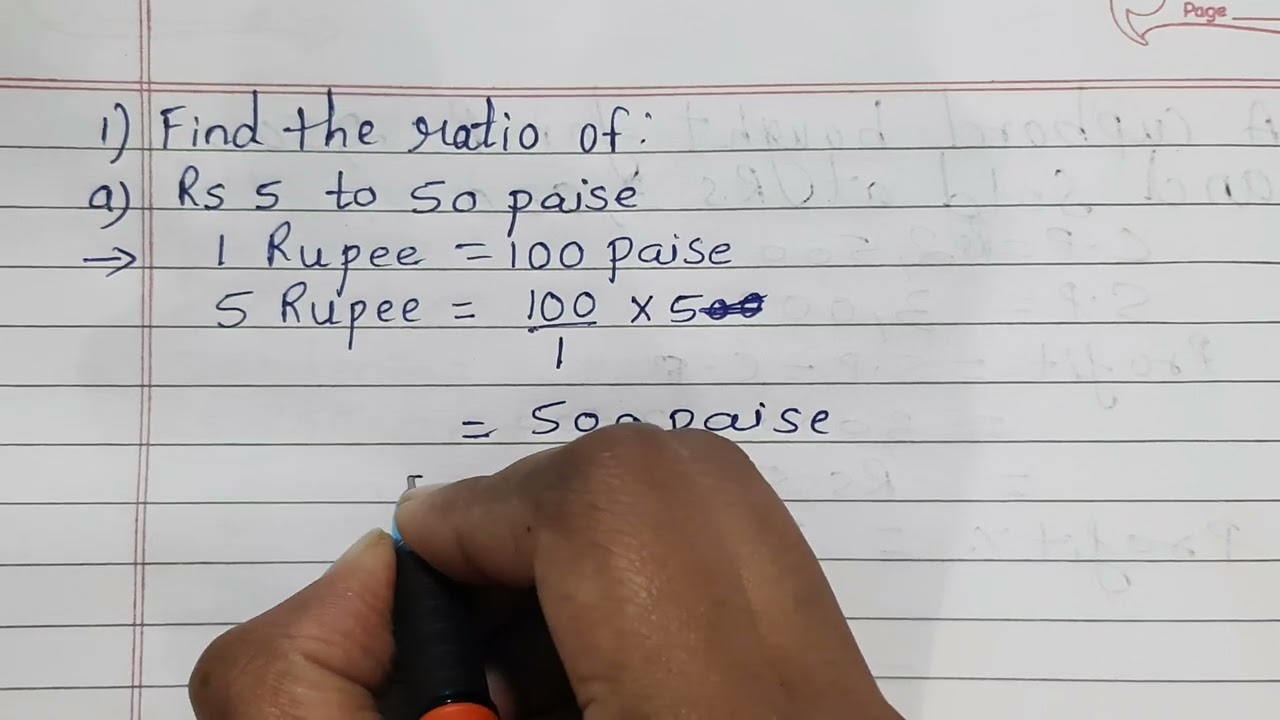 Page
1) Find the ratio of:
a) Rs 5 to 50 paise
→ 1 Rupee = 100 paise
5 Rupee = 100/1 × 5
= 500 paise